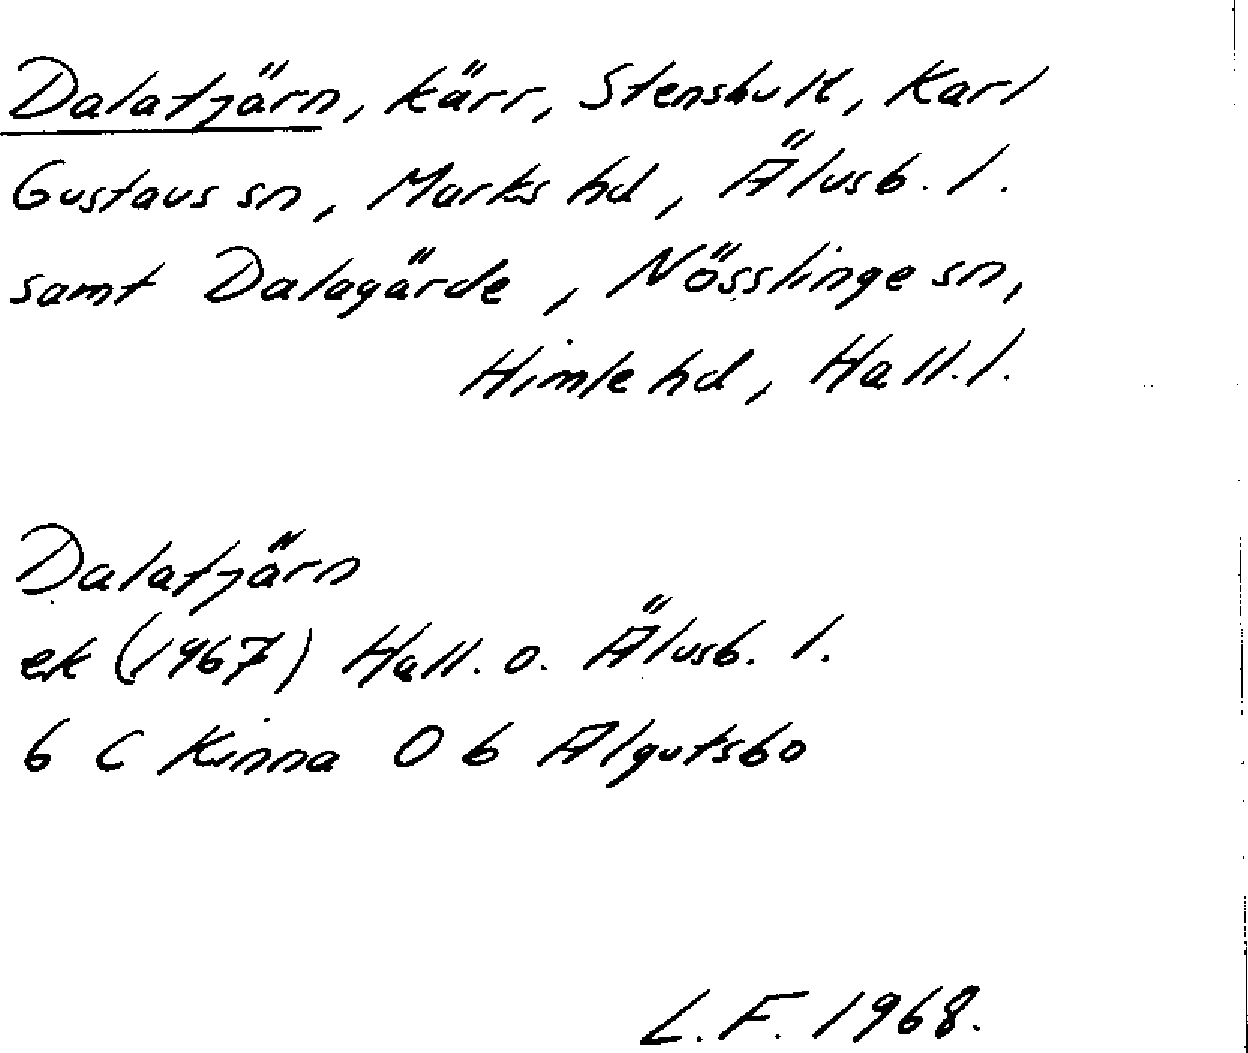 Dalatjärn, kärr, Stenshult, Karl
Gustavs sn, Marks hd, Älvsb. l.
samt Dalagärde, Nösslinge sn,
Himle hd, Hall. l.
Dalatjärn
ek (1967) Hall. o. Älvsb. l.
6 C Kinna 0 b Algutsbo
L. F. 1968.